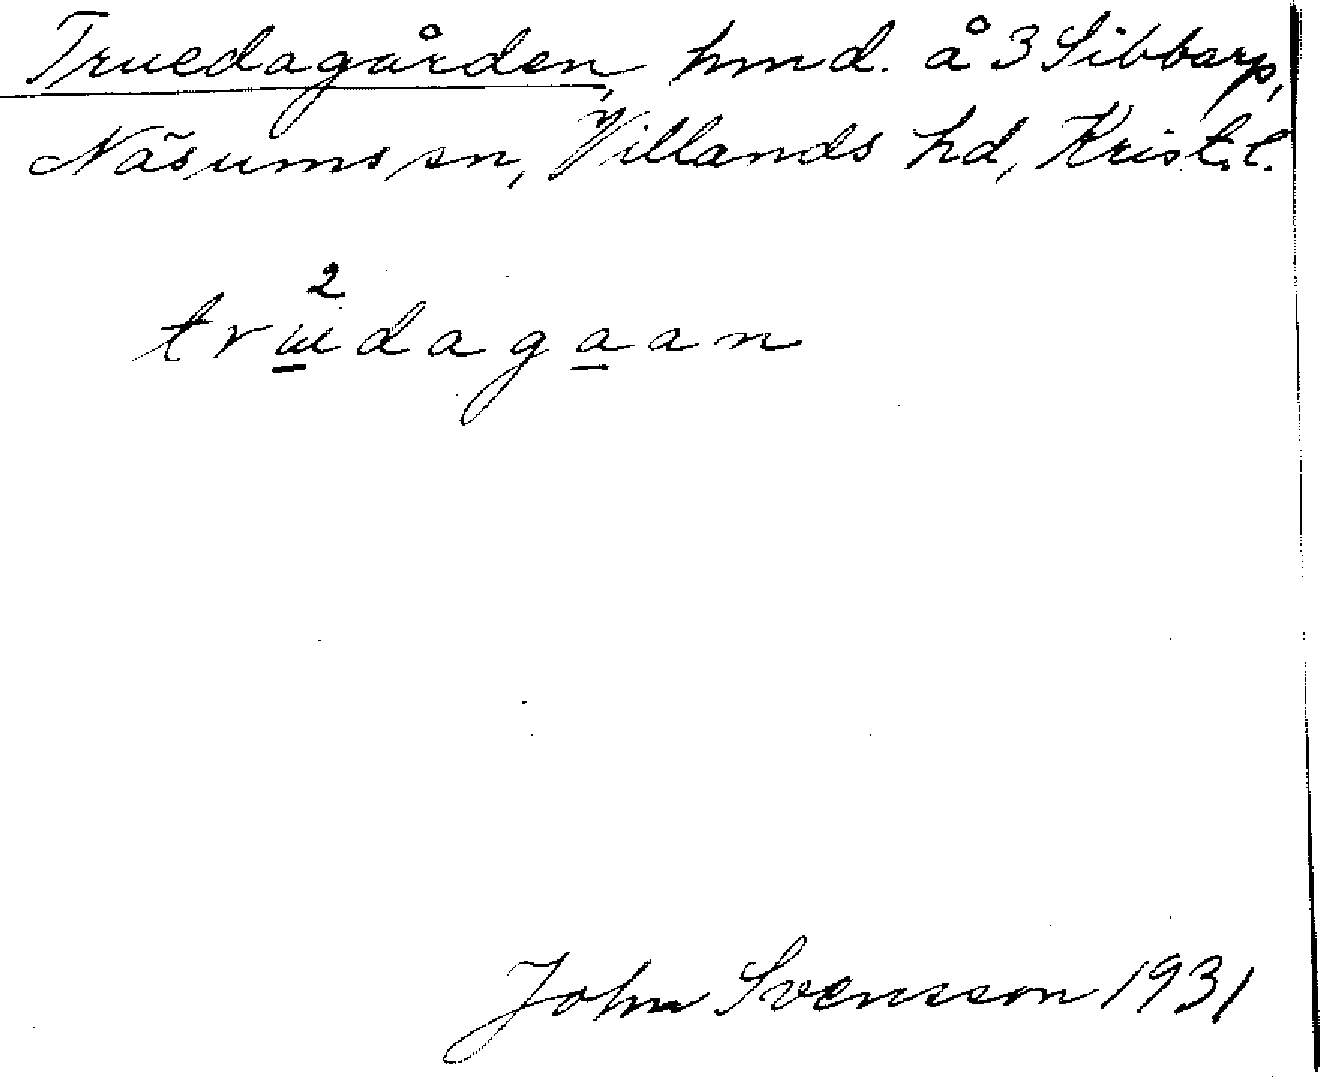 Truedagården, hmd. å 3 Sibbarp,
Näsums sn, Villands hd, Krist. l.
2
trüidagaan
John Svensson 1931